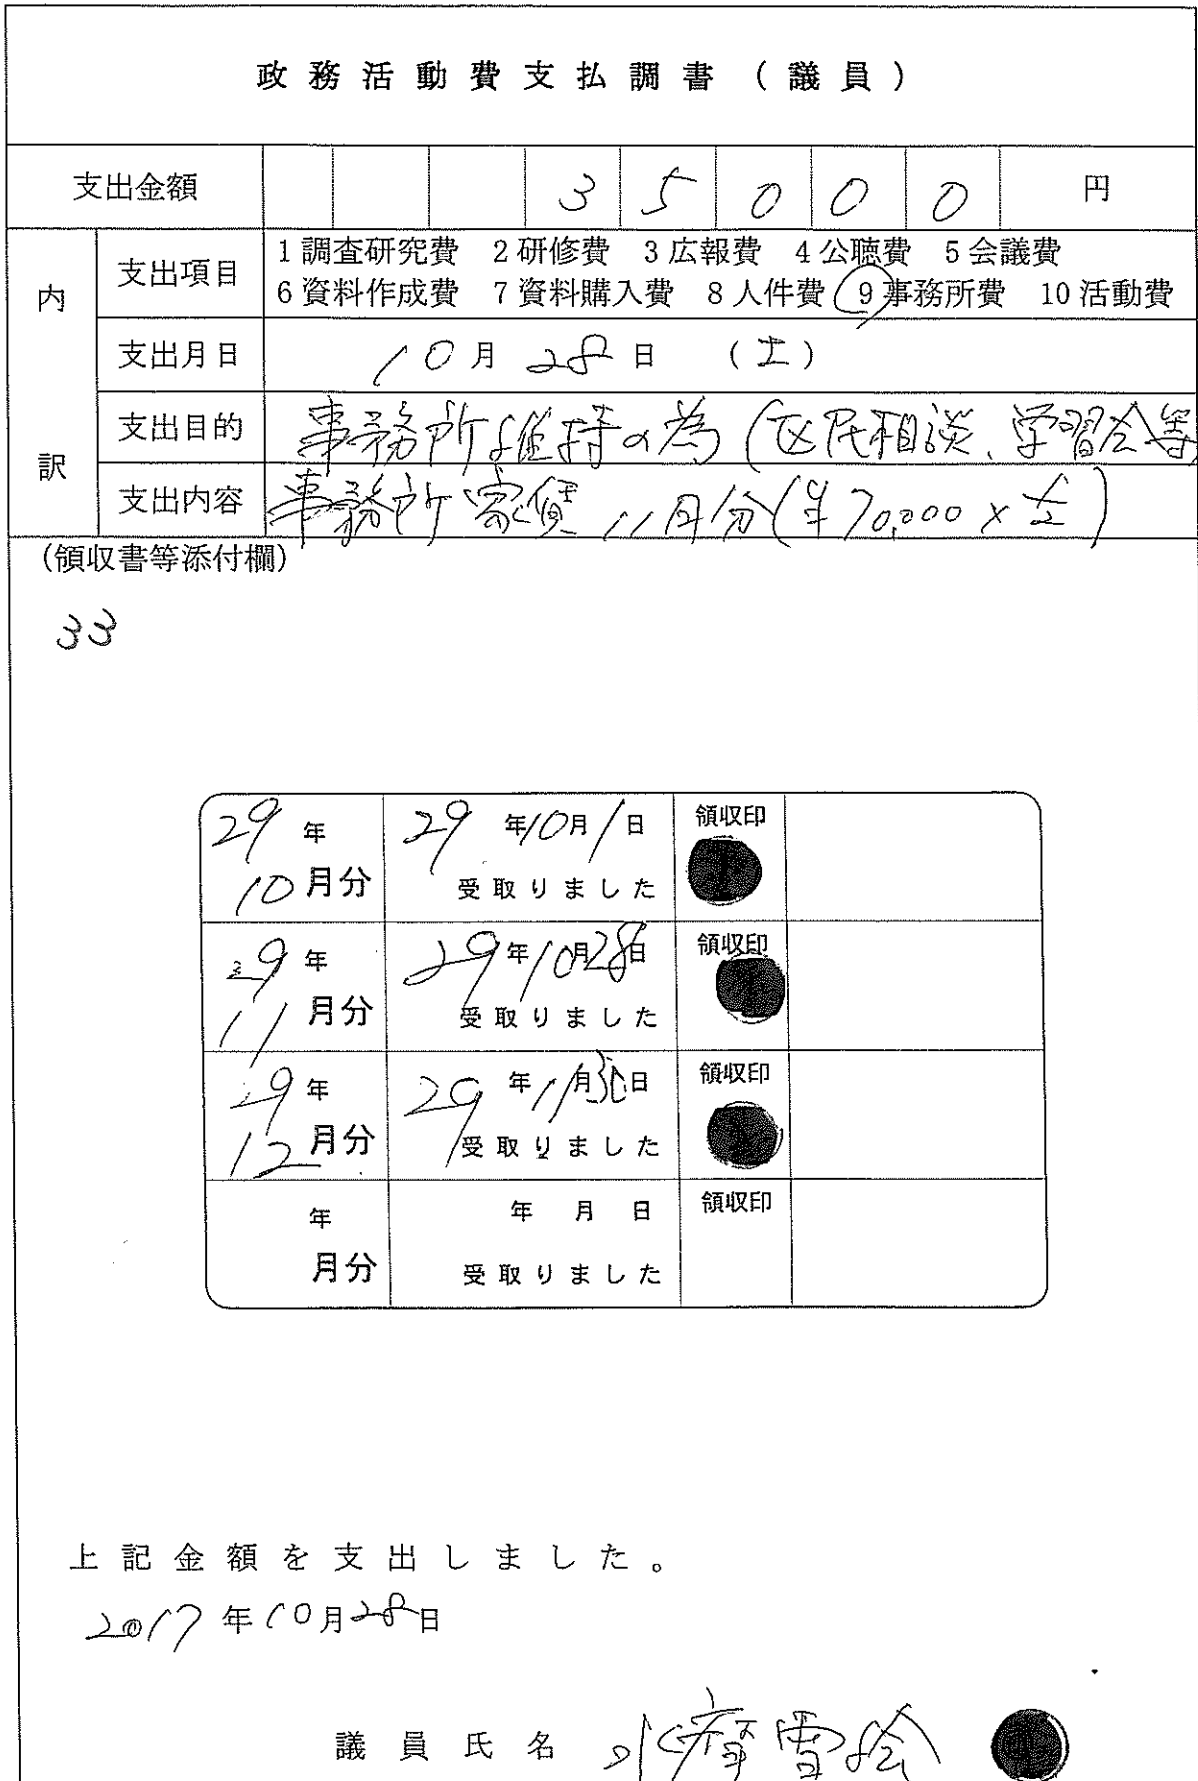 政務活動費支払調書(議員)
支出金額 35000円
内訳
支出項目 1調査研究費 2研修費 3広報費 4公聴費 5会議費
6資料作成費 7資料購入費 8人件費 9事務所費 10活動費
支出月日 10月28日 (土)
支出目的 事務所維持の為(区民相談、学習会等)
支出内容 事務所家賃11月分(¥70,000×1/2)
(領収書等添付欄)
33
29年 29年10月1日 領収印
10月分 受取りました
29年 29年10月28日 領収印
11月分 受取りました
29年 29年11月30日 領収印
12月分 受取りました
年 年月日 領収印
月分 受取りました
上記金額を支出しました。
2017年10月28日
議員氏名